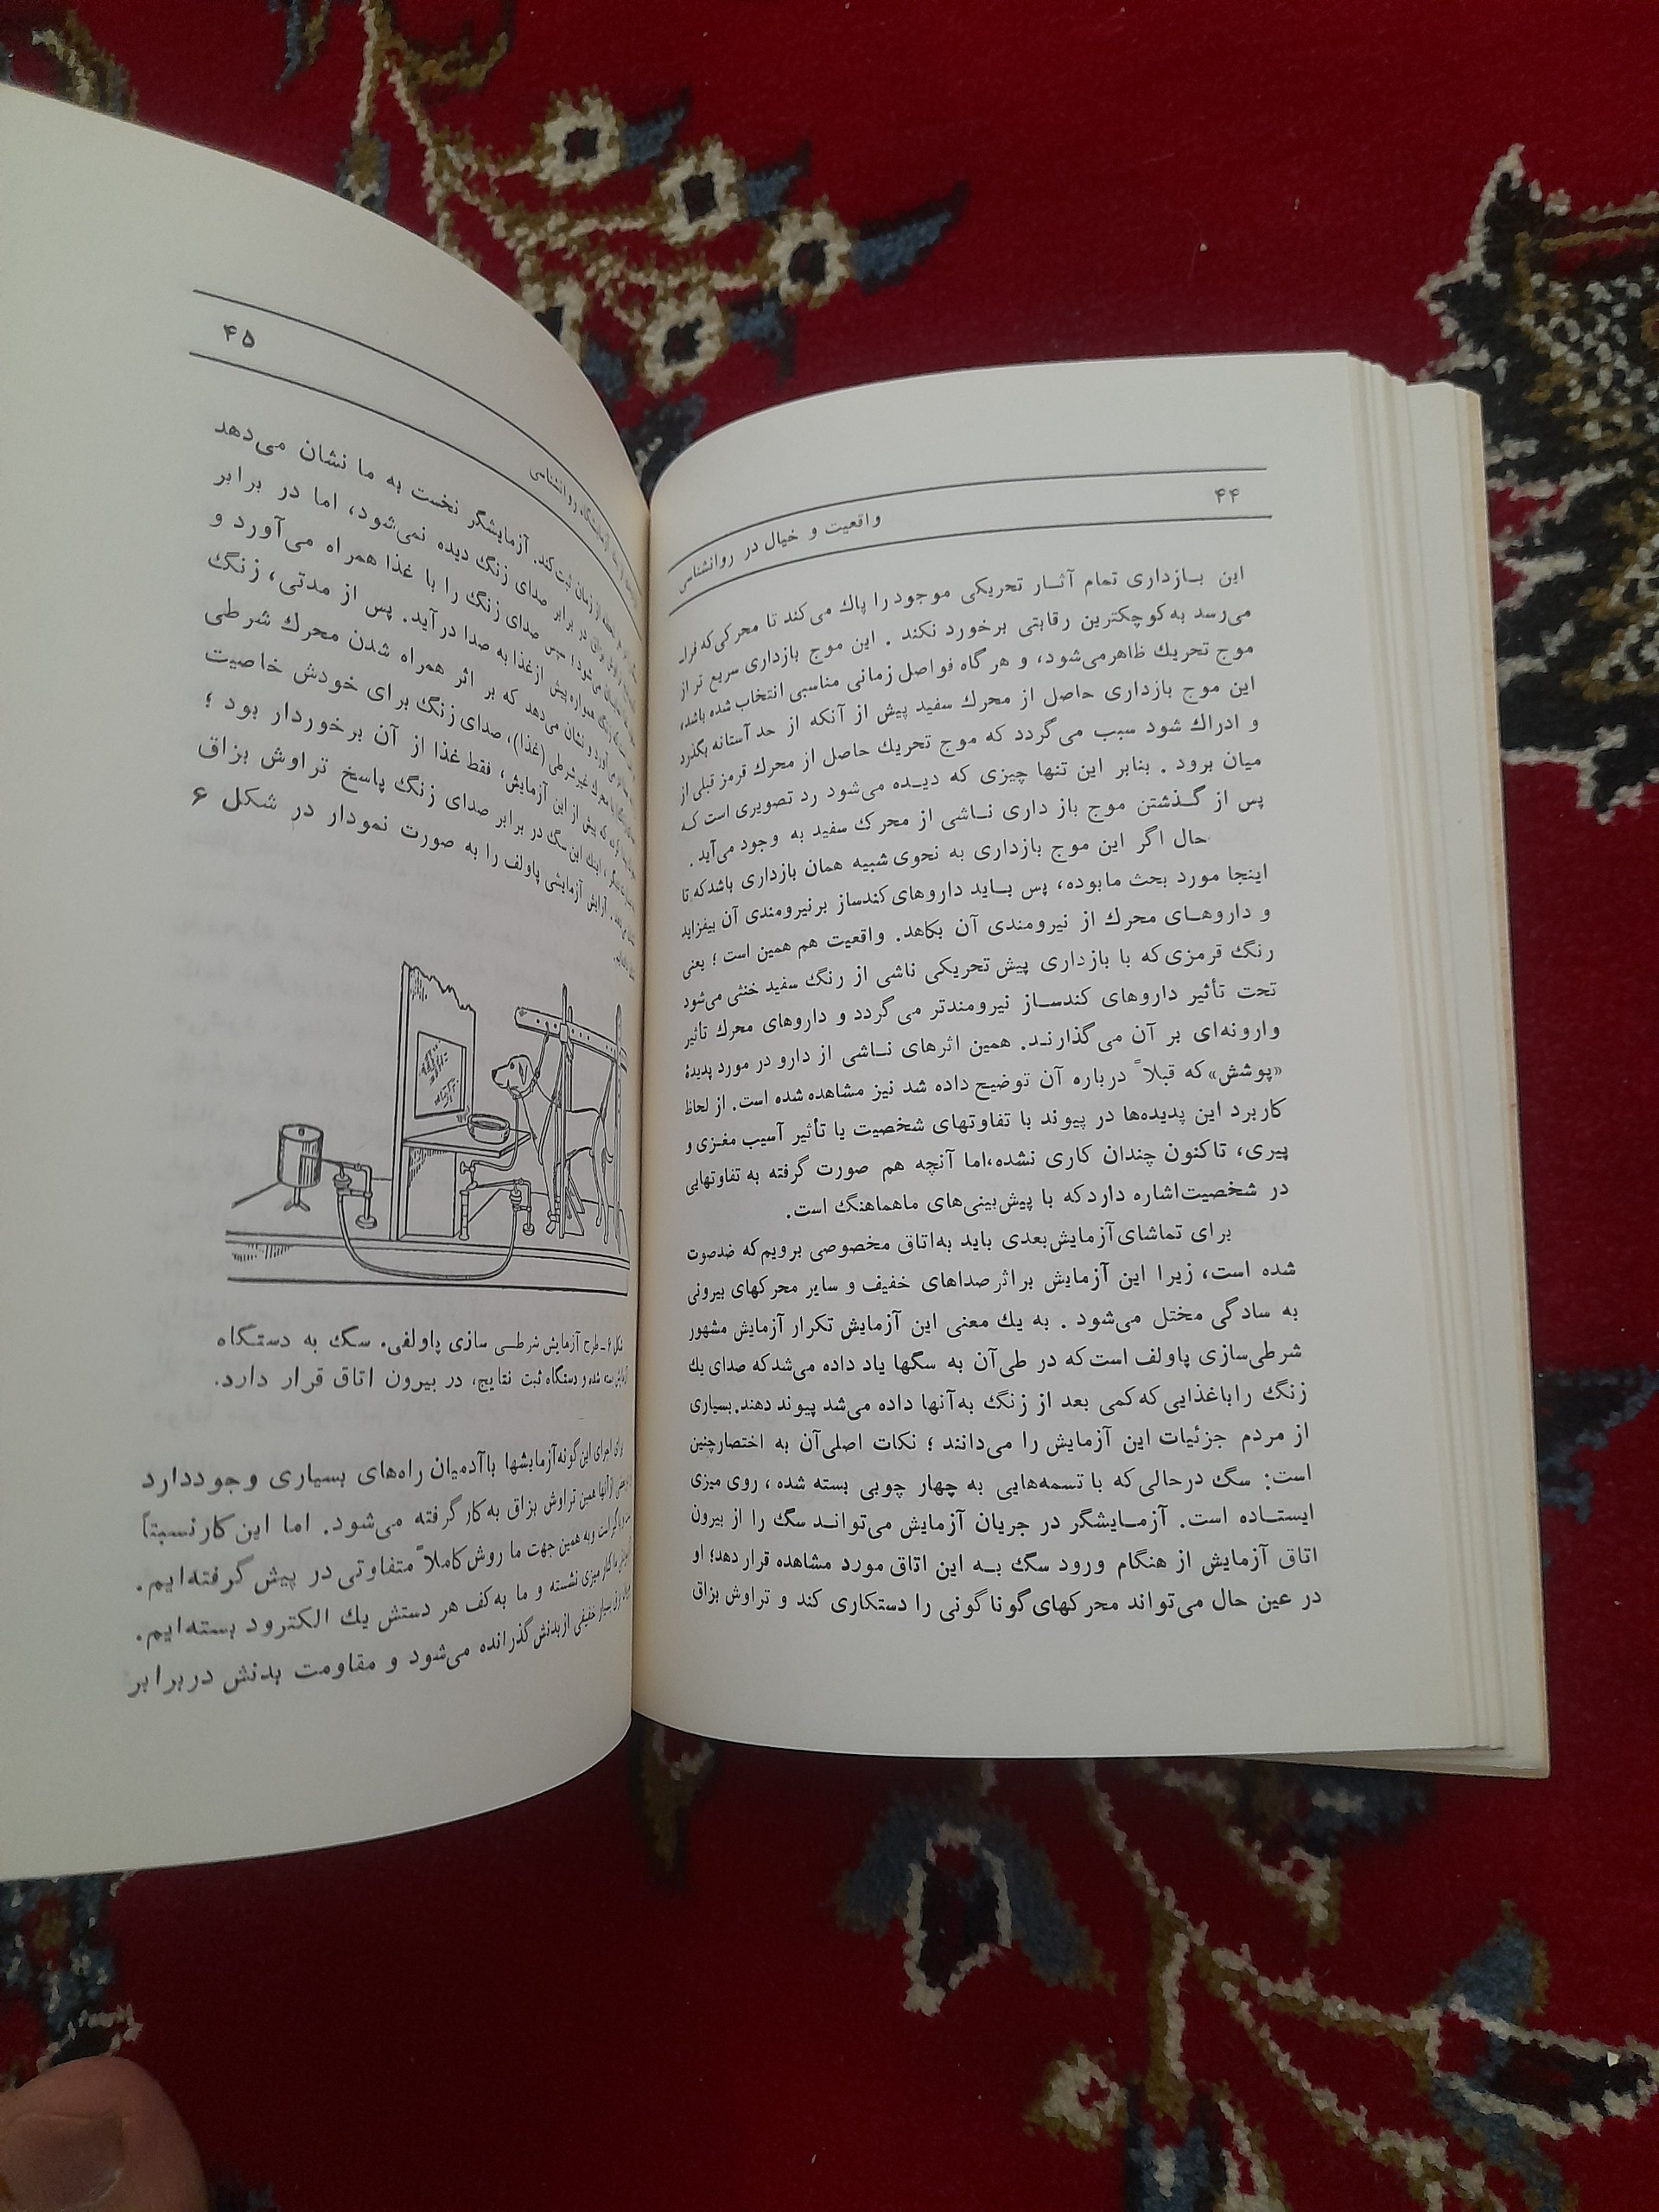 ۴۴
واقعیت و خیال در روانشناسی
این بازداری تمام آثار تحریکی موجود را پاك می‌کند تا محرکی‌که فرا-
می‌رسد به‌کوچکترین رقابتی برخورد نکند . این موج بازداری سریع تر از
موج تحریك ظاهرمی‌شود، و هرگاه فواصل زمانی مناسبی انتخاب شده باشد،
این موج بازداری حاصل از محرك سفید پیش از آنکه از حد آستانه بگذرد
و ادراك شود سبب می‌گردد که موج تحریك حاصل از محرك قرمز قبلی از
میان برود . بنابر این تنها چیزی که دیده می‌شود رد تصویری است که
پس از گذشتن موج باز داری ناشی از محرك سفید به وجود می‌آید .
حال اگر این موج بازداری به نحوی شبیه همان بازداری باشدکه تا
اینجا مورد بحث مابوده، پس باید داروهای کندساز برنیرومندی آن بیفزاید
و داروهای محرك از نیرومندی آن بکاهد. واقعیت هم همین است ؛ یعنی
رنگ قرمزی‌که با بازداری پیش تحریکی ناشی از رنگ سفید خنثی می‌شود
تحت تأثیر داروهای کندساز نیرومندتر می‌گردد و داروهای محرك تأثیر
وارونه‌ای بر آن می‌گذارند. همین اثرهای ناشی از دارو در مورد پدیدهٔ
«پوشش»که قبلاً درباره آن توضیح داده شد نیز مشاهده شده است. از لحاظ
کاربرد این پدیده‌ها در پیوند با تفاوتهای شخصیت یا تأثیر آسیب مغزی و
پیری، تاکنون چندان کاری نشده،اما آنچه هم صورت گرفته به تفاوتهایی
در شخصیت‌اشاره داردکه با پیش‌بینی‌های ماهماهنگ است.
برای تماشای‌آزمایش‌بعدی باید به‌اتاق مخصوصی برویم‌که ضدصوت
شده است، زیرا این آزمایش براثرصداهای خفیف و سایر محرکهای بیرونی
به سادگی مختل می‌شود . به یك معنی این آزمایش تکرار آزمایش مشهور
شرطی‌سازی پاولف است‌که در طی‌آن به سگها یاد داده می‌شدکه صدای یك
زنگ راباغذایی‌که‌کمی بعد از زنگ به‌آنها داده می‌شد پیوند دهند.بسیاری
از مردم جزئیات این آزمایش را می‌دانند ؛ نکات اصلی‌آن به اختصارچنین
است: سگ درحالی‌که با تسمه‌هایی به چهار چوبی بسته شده ، روی میزی
ایستاده است. آزمایشگر در جریان آزمایش می‌تواند سگ را از بیرون
اتاق آزمایش از هنگام ورود سگ به این اتاق مورد مشاهده قرار دهد؛ او
در عین حال می‌تواند محرکهای گوناگونی را دستکاری کند و تراوش بزاق
۴۵
آزمایشگاه روانشناسی
از زمان ثبت‌کند. آزمایشگر نخست به ما نشان می‌دهد
در برابر صدای زنگ دیده نمی‌شود، اما در برابر
می‌شود؛ سپس صدای زنگ را با غذا همراه می‌آورد و
زنگ همواره پیش ازغذا به صدا درآید. پس از مدتی، زنگ
می‌آورد و نشان می‌دهد که بر اثر همراه شدن محرك شرطی
با محرك غیرشرطی (غذا)، صدای زنگ برای خودش خاصیت
که پیش از این آزمایش، فقط غذا از آن برخوردار بود ؛
دیگر، اینك این سگ در برابر صدای زنگ پاسخ تراوش بزاق
آرایش آزمایشی پاولف را به صورت نمودار در شکل ۶
شکل ۶ – طرح آزمایش شرطی سازی پاولفی. سگ به دستگاه
آزمایش بسته شده و دستگاه ثبت نتایج، در بیرون اتاق قرار دارد.
برای اجرای این‌گونه‌آزمایشها باآدمیان راه‌های بسیاری وجوددارد
از آنها همین تراوش بزاق به‌کار گرفته می‌شود. اما این‌کارنسبتاً
است وبه همین جهت ما روش‌کاملاً متفاوتی در پیش گرفته‌ایم.
کنار میزی نشسته و ما به‌کف هر دستش یك الکترود بسته‌ایم.
برق بسیار خفیفی ازبدنش‌گذرانده می‌شود و مقاومت بدنش دربرابر